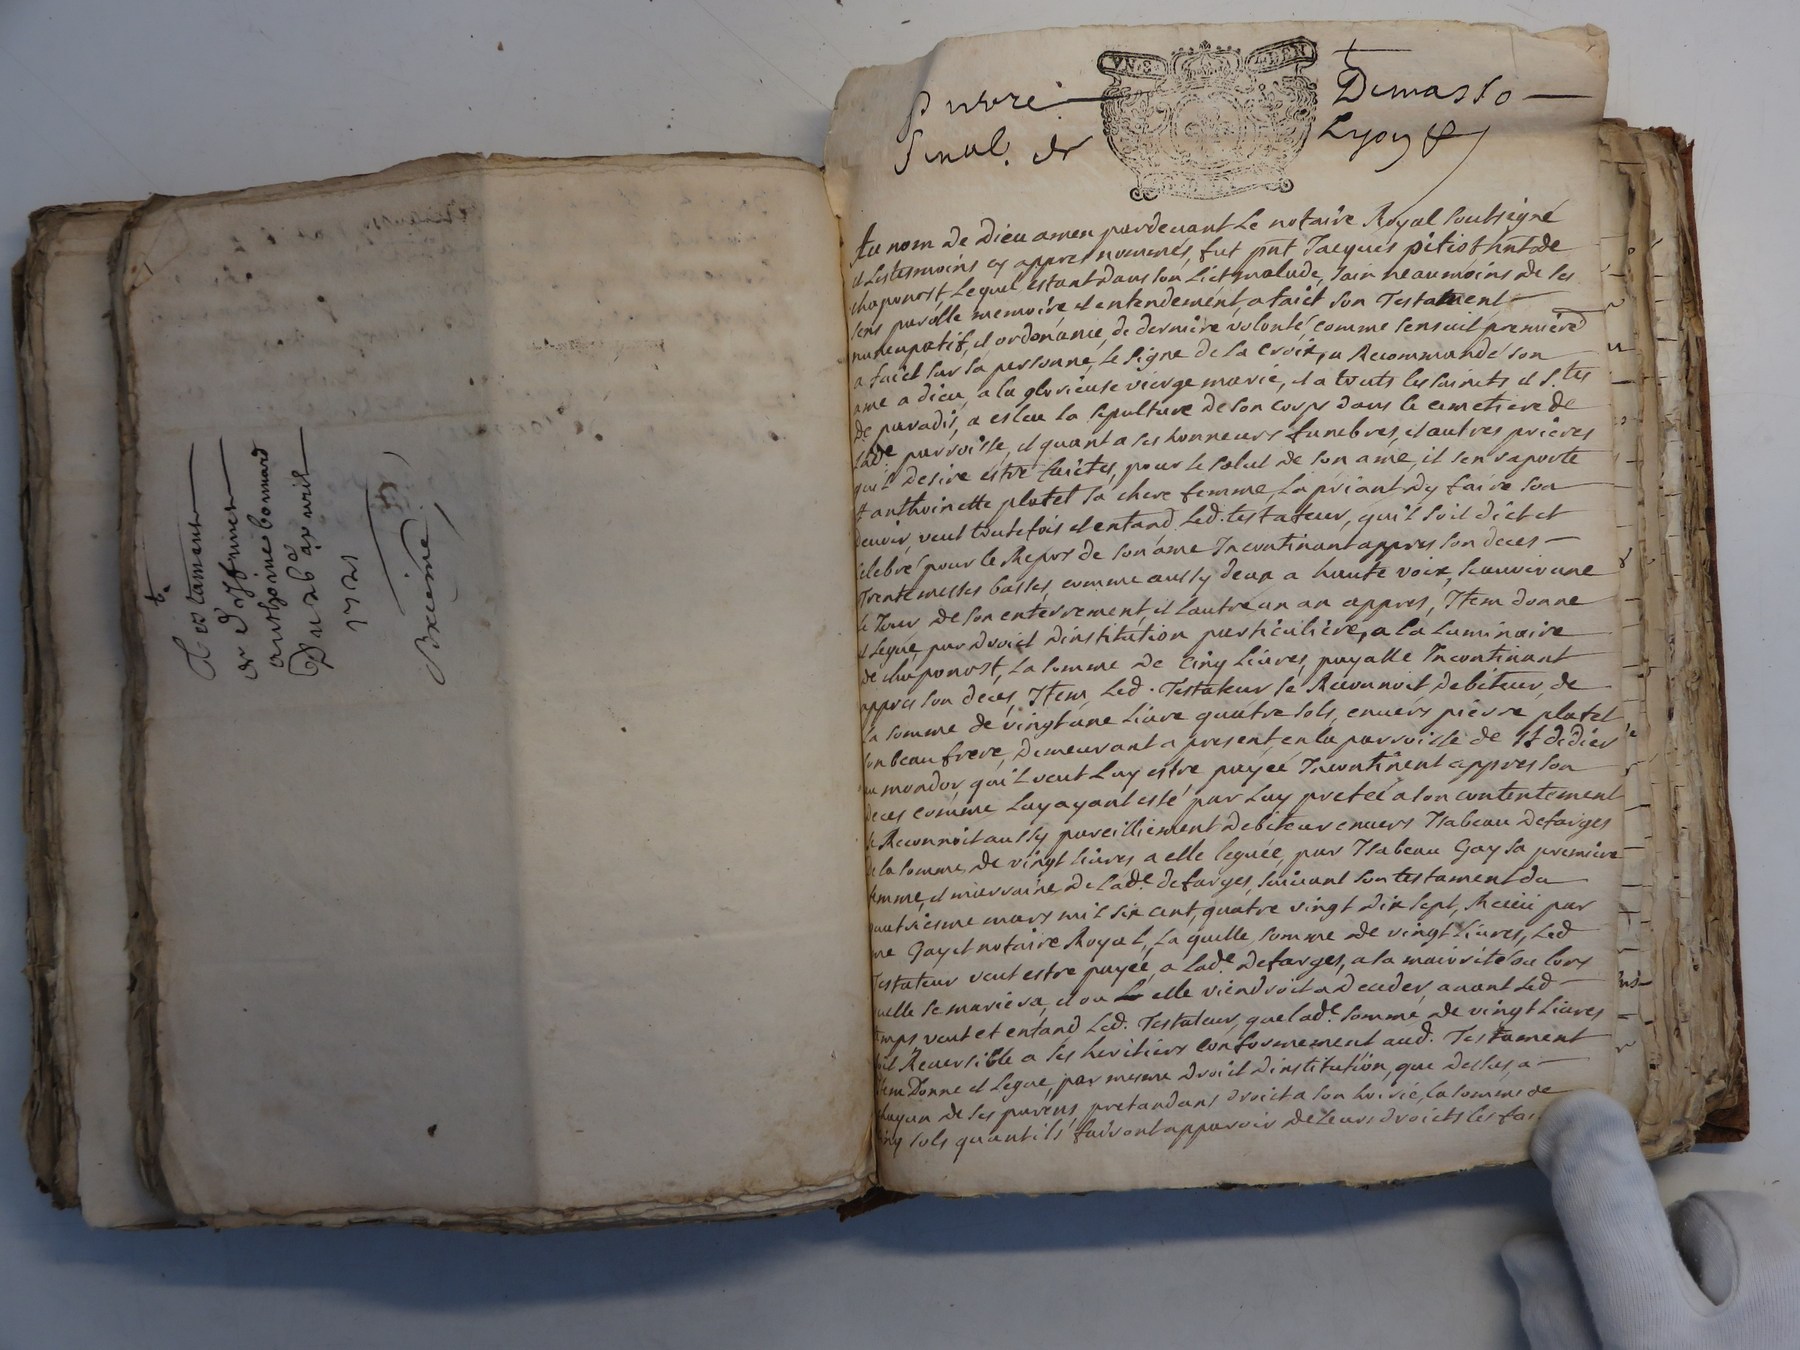 Testament
de deffunct
anthoine bonnard
Du 26e avril
1721
Pierre Demasso
Senal. de Lyon &
Au nom de Dieu amen pardevant Le notaire Royal soubsigné
et Les tesmoins cy appres nommés, fut pnt Jacques pitiot hnt de
chaponost, Lequel estant dans son Lict malade, sain neaumoins de ses
sens parolle memoire et entendement, a faict son Testament
nuncupatif, et ordonance de derniere volonté comme sensuit, premiered
a faict sur sa personne, Le signe de La Croix, a Recommandé son
ame a dieu, a la glorieuse vierge marie, et a touts les saincts et s.tes
De paradis, a esleu la sepulture de son corps dans le cemetiere de
Lade parroisse, et quant a ses honneurs funebres, et autres prieres
quil desire estre faictes, pour le salut de son ame, il sen raporte
a anthoinette platet sa chere femme, La priant dy faire son
devoir, veut toutefois et entand Led. testateur, qu'il soit dict et
celebré pour le Repos de son ame Incontinant appres son deces
Trente messes basses, comme aussy deux a haute voix, scauoir une
le Jour de son enterrement, et Lautre un an appres, Item donne
et Legue, par droict dinstitution particuliere, a la Luminaire
de chaponost, La somme de Cinq Livres, payable Incontinant
appres son deces, Item, Led. Testateur se Reconnoit debiteur, de
La somme de vingt une Livre quatre sols, envers pierre platet
son beau frere, Demeurant a present, en la parroisse de St didier
au mondor, qu'il veut Luy estre payée Incontinent appres son
deces comme Luy ayant esté par Luy pretée a son contentement
se Reconnoit aussy pareilliement debiteur envers Isabeau defarges
de la somme de vingt livres a elle leguée, par Isabeau Gay sa premiere
femme, et marraine de Lade. defarges, suivant son testament du
quatriesme mars mil six cent, quatre vingt dix sept, Receu par
me Gayet notaire Royal, La quelle somme de vingt Livres, Led
Testateur veut estre payée, a Lade. defarges, a la maiorité ou lors
quelle se mariera, et ou elle viendroit a deceder, avant Led
temps veut et entand Led. Testateur, que lade. somme de vingt Livres
soit Reversible a ses heritiers conformement aud. Testament
Item Donne et Legue, par mesme droict dinstitution, que dessus, a
chaqun de ses parens pretandans droict a son hoirie, la somme de
Cinq sols quant ils fairont apparoir de Leurs droicts les fai